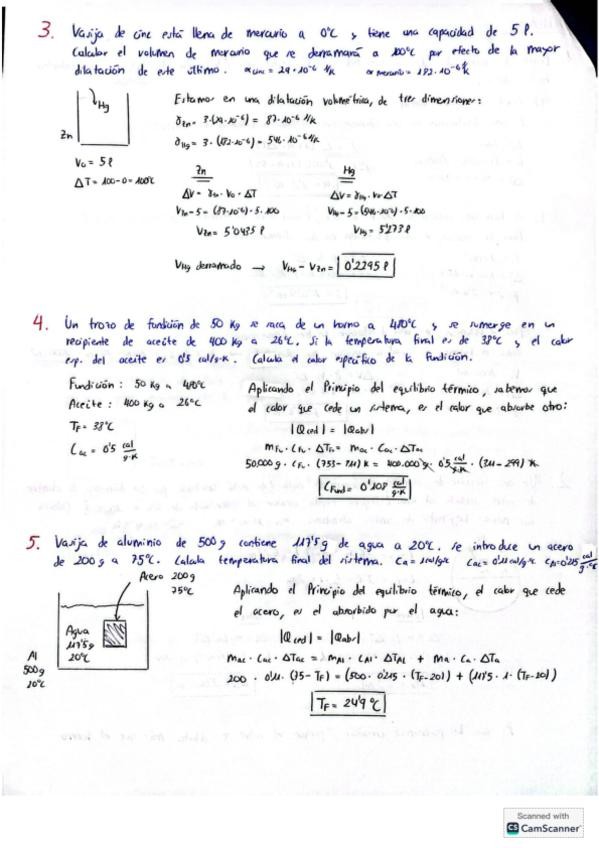 3. Vasija de cinc está llena de mercurio a 0°C y tiene una capacidad de 5 l.
Calcular el volumen de mercurio que se derramará a 100°C por efecto de la mayor
dilatación de este último. α cinc = 29·10⁻⁶ 1/K α mercurio = 182·10⁻⁶ 1/K
Hg
Zn
V₀ = 5 l
ΔT = 100-0 = 100°C
Estamos en una dilatación volumétrica, de tres dimensiones:
γZn = 3·(29·10⁻⁶) = 87·10⁻⁶ 1/K
γHg = 3·(182·10⁻⁶) = 546·10⁻⁶ 1/K
Zn
ΔV = γZn · V₀ · ΔT
VZn - 5 = (87·10⁻⁶)·5·100
VZn = 5'0435 l
Hg
ΔV = γHg · V₀ · ΔT
VHg - 5 = (546·10⁻⁶)·5·100
VHg = 5'273 l
VHg derramado → VHg - VZn = 0'2295 l
4. Un trozo de fundición de 50 Kg se saca de un horno a 480°C y se sumerge en un
recipiente de aceite de 400 Kg a 26°C. Si la temperatura final es de 38°C y el calor
esp. del aceite es 0'5 cal/g·K. Calcula el calor específico de la fundición.
Fundición : 50 Kg a 480°C
Aceite : 400 Kg a 26°C
TF = 38°C
Cac = 0'5 cal/g·K
Aplicando el Principio del equilibrio térmico, sabemos que
el calor que cede un sistema, es el calor que absorbe otro:
|Qced| = |Qabs|
mFu · CFu · ΔTFu = mac · Cac · ΔTac
50.000 g · CFu · (753 - 311) K = 400.000 g · 0'5 cal/g·K · (311 - 299) K
CFund = 0'108 cal/g·K
5. Vasija de aluminio de 500 g contiene 117'5 g de agua a 20°C. Se introduce un acero
de 200 g a 75°C. Calcula temperatura final del sistema. Ca = 1 cal/g·K Cac = 0'11 cal/g·K CAl = 0'215 cal/g·K
Acero 200 g
75°C
Agua
117'5 g
20°C
Al
500 g
20°C
Aplicando el Principio del equilibrio térmico, el calor que cede
el acero, es el absorbido por el agua:
|Qced| = |Qabs|
mac · Cac · ΔTac = mAl · CAl · ΔTAl + ma · Ca · ΔTa
200 · 0'11 · (75 - TF) = (500 · 0'215 · (TF - 20)) + (117'5 · 1 · (TF - 20))
TF = 24'9 °C
Scanned with
CS CamScanner